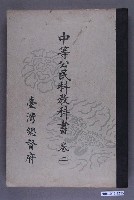 中等公民科教科書 卷二
臺灣總督府